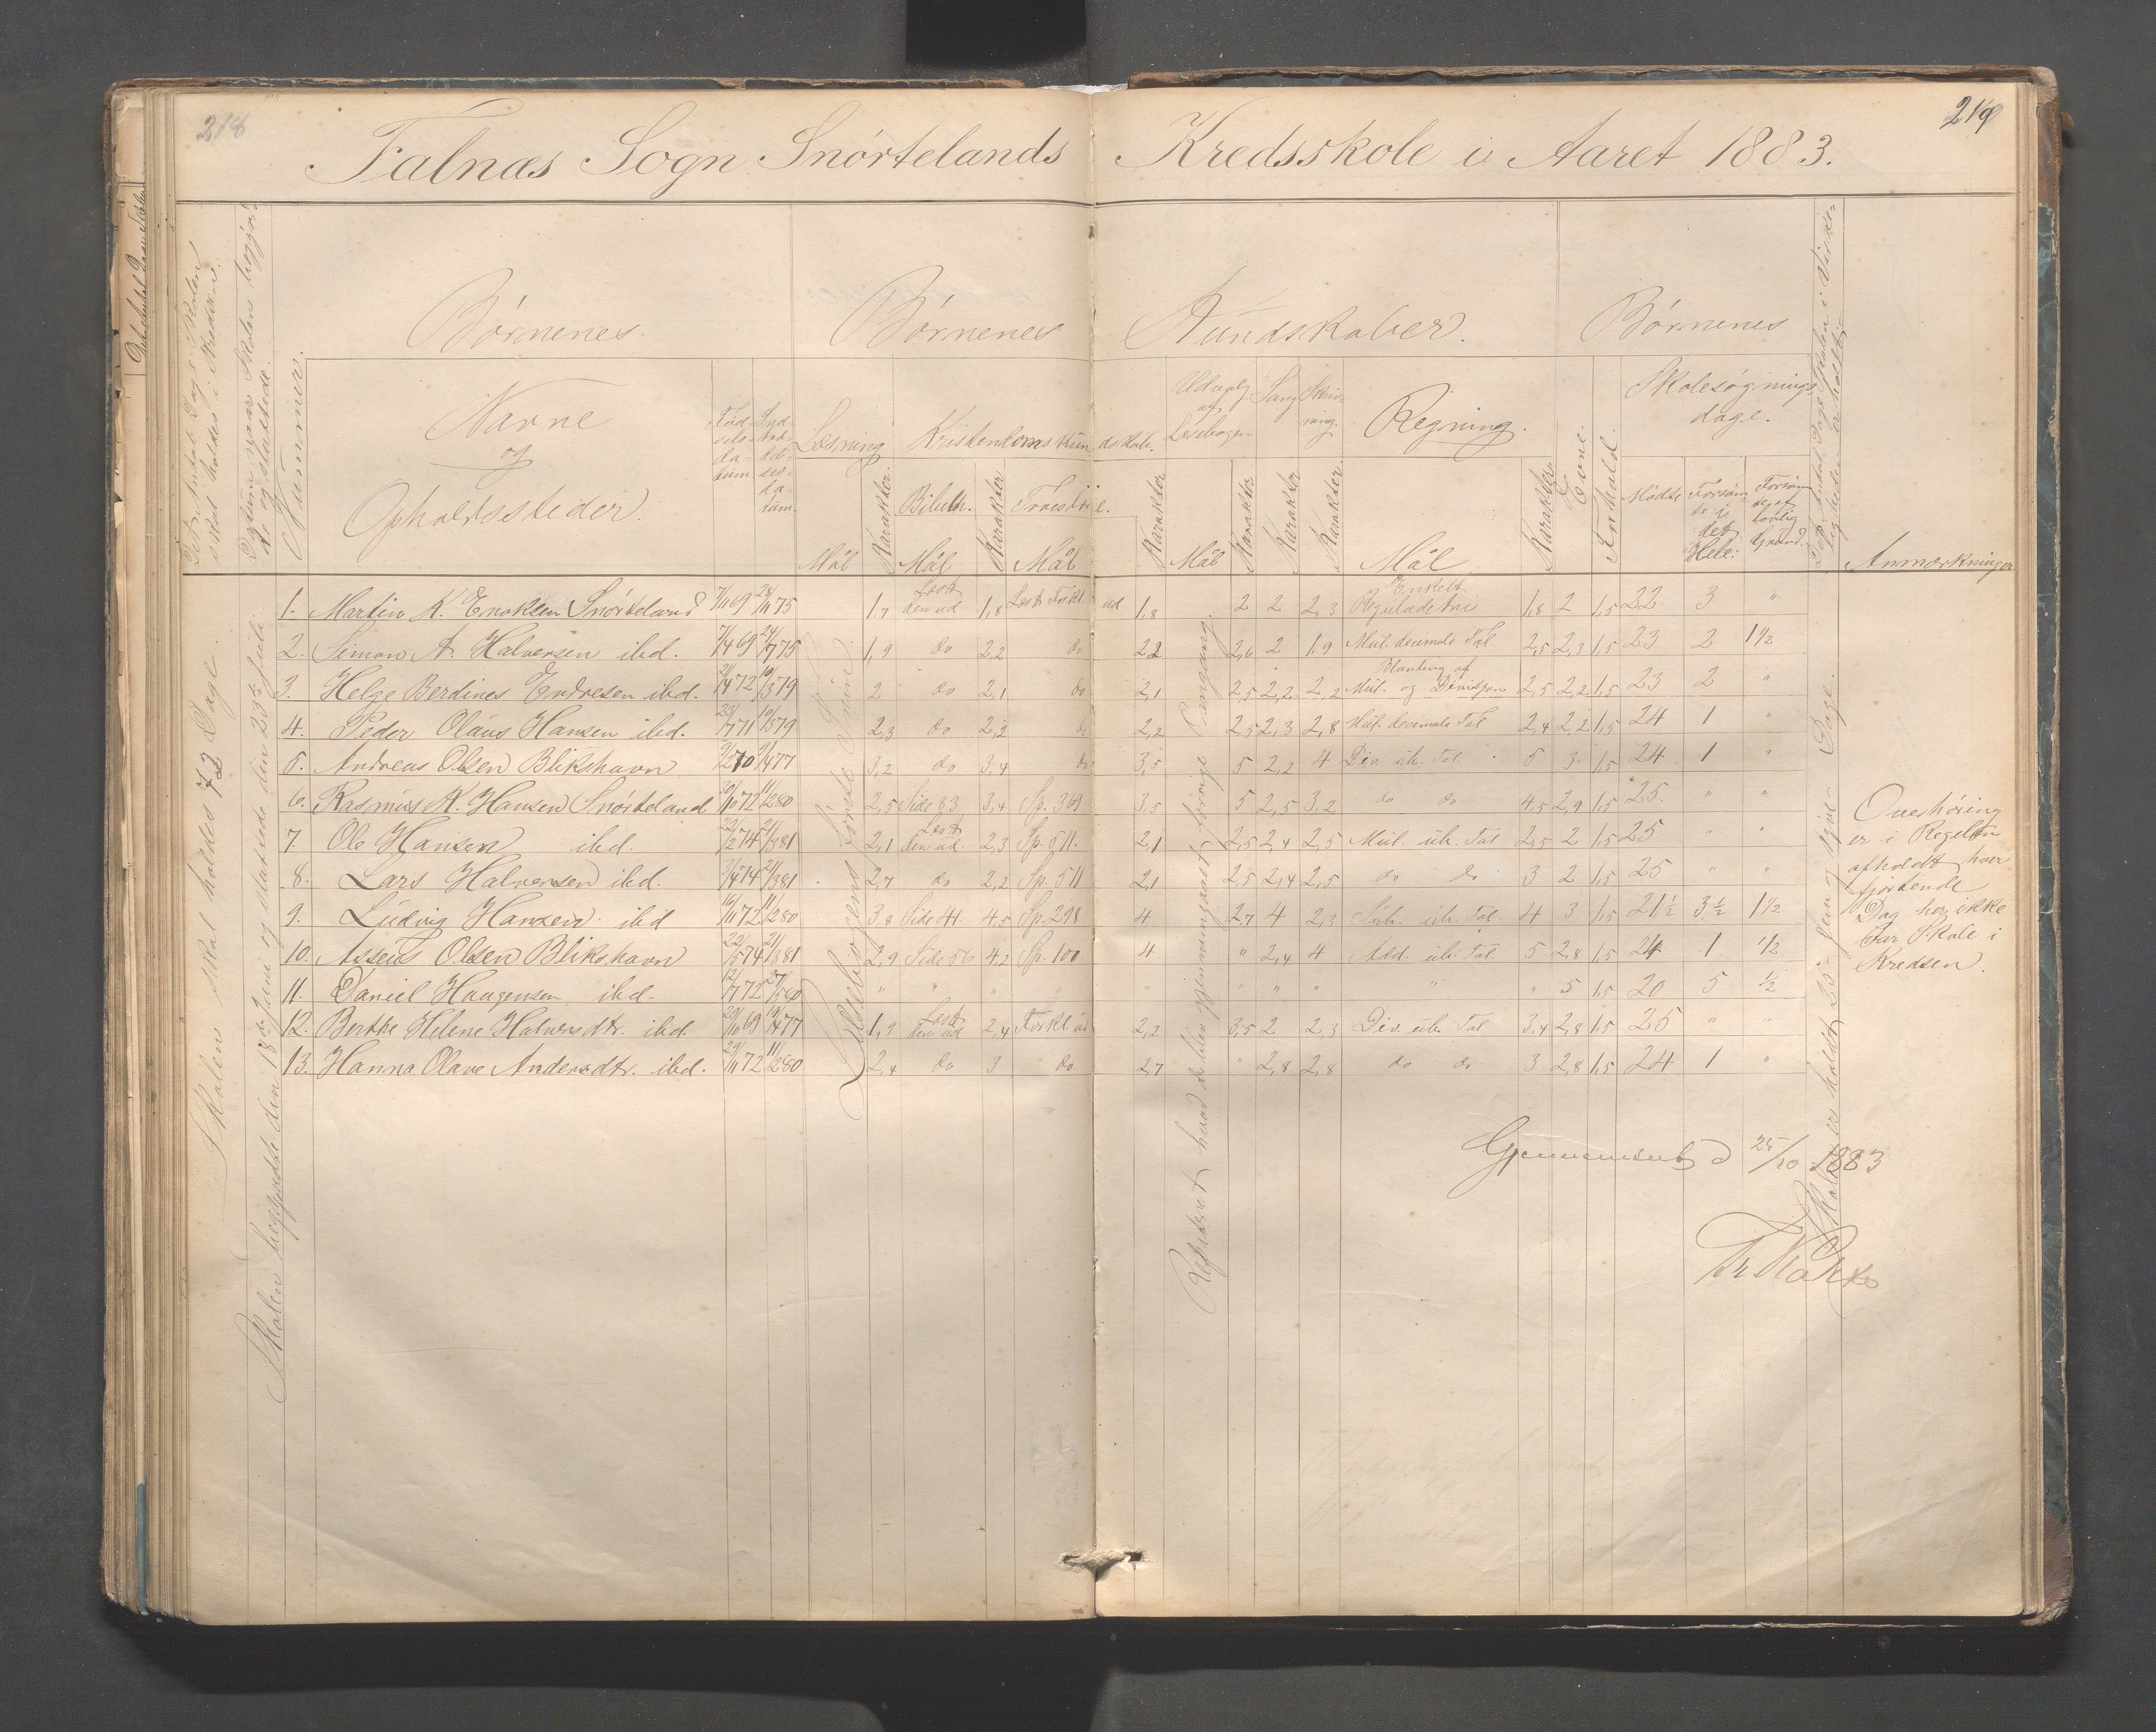 218
219
Falnæs Sogn Snørtelands Kredsskole i Aaret 1883.
Det Antal Dage Skolen
skal holdes i Kredsen.
Datum naar Skolen begyn-
te og sluttede.
Nummer.
Børnenes
Børnenes Kundskaber.
Børnenes
Navne
og
Opholdssteder.
Fød-
sels-
da-
tum.
Ind-
træd-
del-
ses-
da-
tum.
Læsning
Kristendomskundskab.
Udvalg
af
Læsebogen
Sang
Skriv-
ning.
Regning.
Evne.
Forhold.
Skolesøgnings
dage.
Mål
Karakter.
Bibelh.
Mål
Karakter
Troeslære.
Mål
Karakter
Mål
Karakter
Karakter
Karakter.
Mål
Karakter.
Mødte
Forsøm-
te i
det
Hele.
Forsøm-
te af
lovlig
Grund.
Anmærkninger
1. Martin K. Enoksen Snørteland 7/11 69 28/11 75 1,7 Læst den ud 1,8 Læst Forkl. ud 1,8 2 2 2,3 Enkelt Reguladetri 1,8 2 1,5 22 3 "
2. Simon A. Halvorsen ibd. 7/4 69 24/7 75 1,9 do 2,2 do 2,2 2,6 2 1,9 Mul. decimale Tal. 2,5 2,3 1,5 23 2 1 1/2
3. Helge Berdines Endresen ibd. 21/4 72 19/3 79 2 do 2,1 do 2,1 2,5 2,2 2,2 Blanding af Mul. og Division 2,5 2,2 1,5 23 2 "
4. Peder Olaus Hansen ibd. 23/7 71 19/3 79 2,3 do 2,2 do 2,2 2,5 2,3 2,8 Mul. decimale Tal 2,4 2,2 1,5 24 1 "
5. Andreas Olsen Blikshavn 9/2 70 9/4 77 3,2 do 3,4 do 3,5 5 2,2 4 Div. ub. Tal. 5 3 1,5 24 1 "
6. Rasmus K. Hansen Snørteland 10/10 72 11/2 80 2,5 Side 83 3,4 Sp. 369 3,5 5 2,5 3,2 do do 4,5 2,9 1,5 25 " "
7. Ole Hansen ibd. 22/2 74 21/3 81 2,1 Læst den ud 2,3 Sp. 511. 2,1 2,5 2,4 2,5 Mul. ub. Tal 2,5 2 1,5 25 " "
8. Lars Halvorsen ibd. 7/4 74 21/3 81 2,7 do 2,2 Sp. 511 2,1 2,5 2,4 2,5 do do 3 2 1,5 25 " "
9. Ludvig Hansen ibd 16/11 72 11/2 80 3,8 Side 41 4,5 Sp. 298 4 2,7 4 2,3 Sub. ub. Tal. 4 3 1,5 21 1/2 3 1/2 1 1/2
10. Assens Olsen Blikshavn 22/5 74 21/3 81 2,9 Side 56 4,2 Sp. 100 4 " 2,4 4 Add. ub. Tal. 5 2,8 1,5 24 1 1/2
11. Daniel Haugensen ibd. 12/7 72 27/5 80 " " " " " " " " " " 5 1,5 20 5 1/2
12. Berthe Helene Halvorsdtr. ibd. 29/10 69 19/4 77 1,9 Læst den ud 2,4 Forkl. ud 2,2 3,5 2 2,3 Div. ub. Tal 3,4 2,8 1,5 25 " "
13. Hanna Olave Andersdtr. ibd. 29/11 72 11/2 80 2,4 do 3 do 2,7 " 2,8 2,8 do do 3 2,8 1,5 24 1 "
Skolen skal holdes 72 Dage.
Skolen begyndte den 18de Juni og sluttede den 23de Juli.
Repeteret hvad der blev gjennemgaaet forrige Omgang.
Skolen er holdt 25 - fem og tyve - Dage.
Overhøring
er i Regelen
afholdt hver
fjortende
Dag her ikke
var Skole i
Kredsen.
Gjennemseet d 25/10 1883